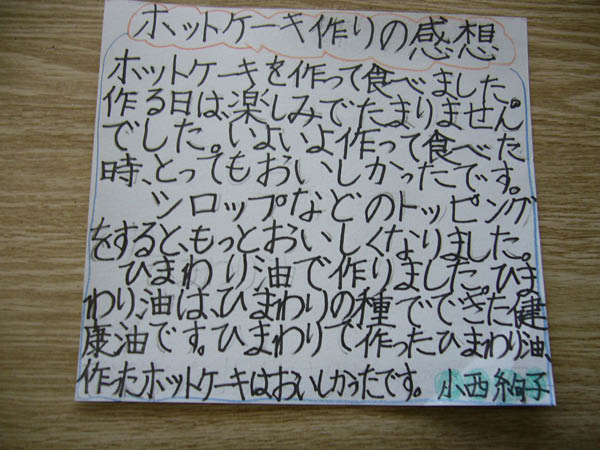 ホットケーキ作りの感想
ホットケーキを作って食べました。
作る日は、楽しみでたまりません
でした。いよいよ作って食べた
時、とってもおいしかったです。
シロップなどのトッピング
をすると、もっとおいしくなりました。
ひまわり油で作りました。ひま
わり油は、ひまわりの種でできた健
康油です。ひまわりで作ったひまわり油、
作ったホットケーキはおいしかったです。 小西絢子